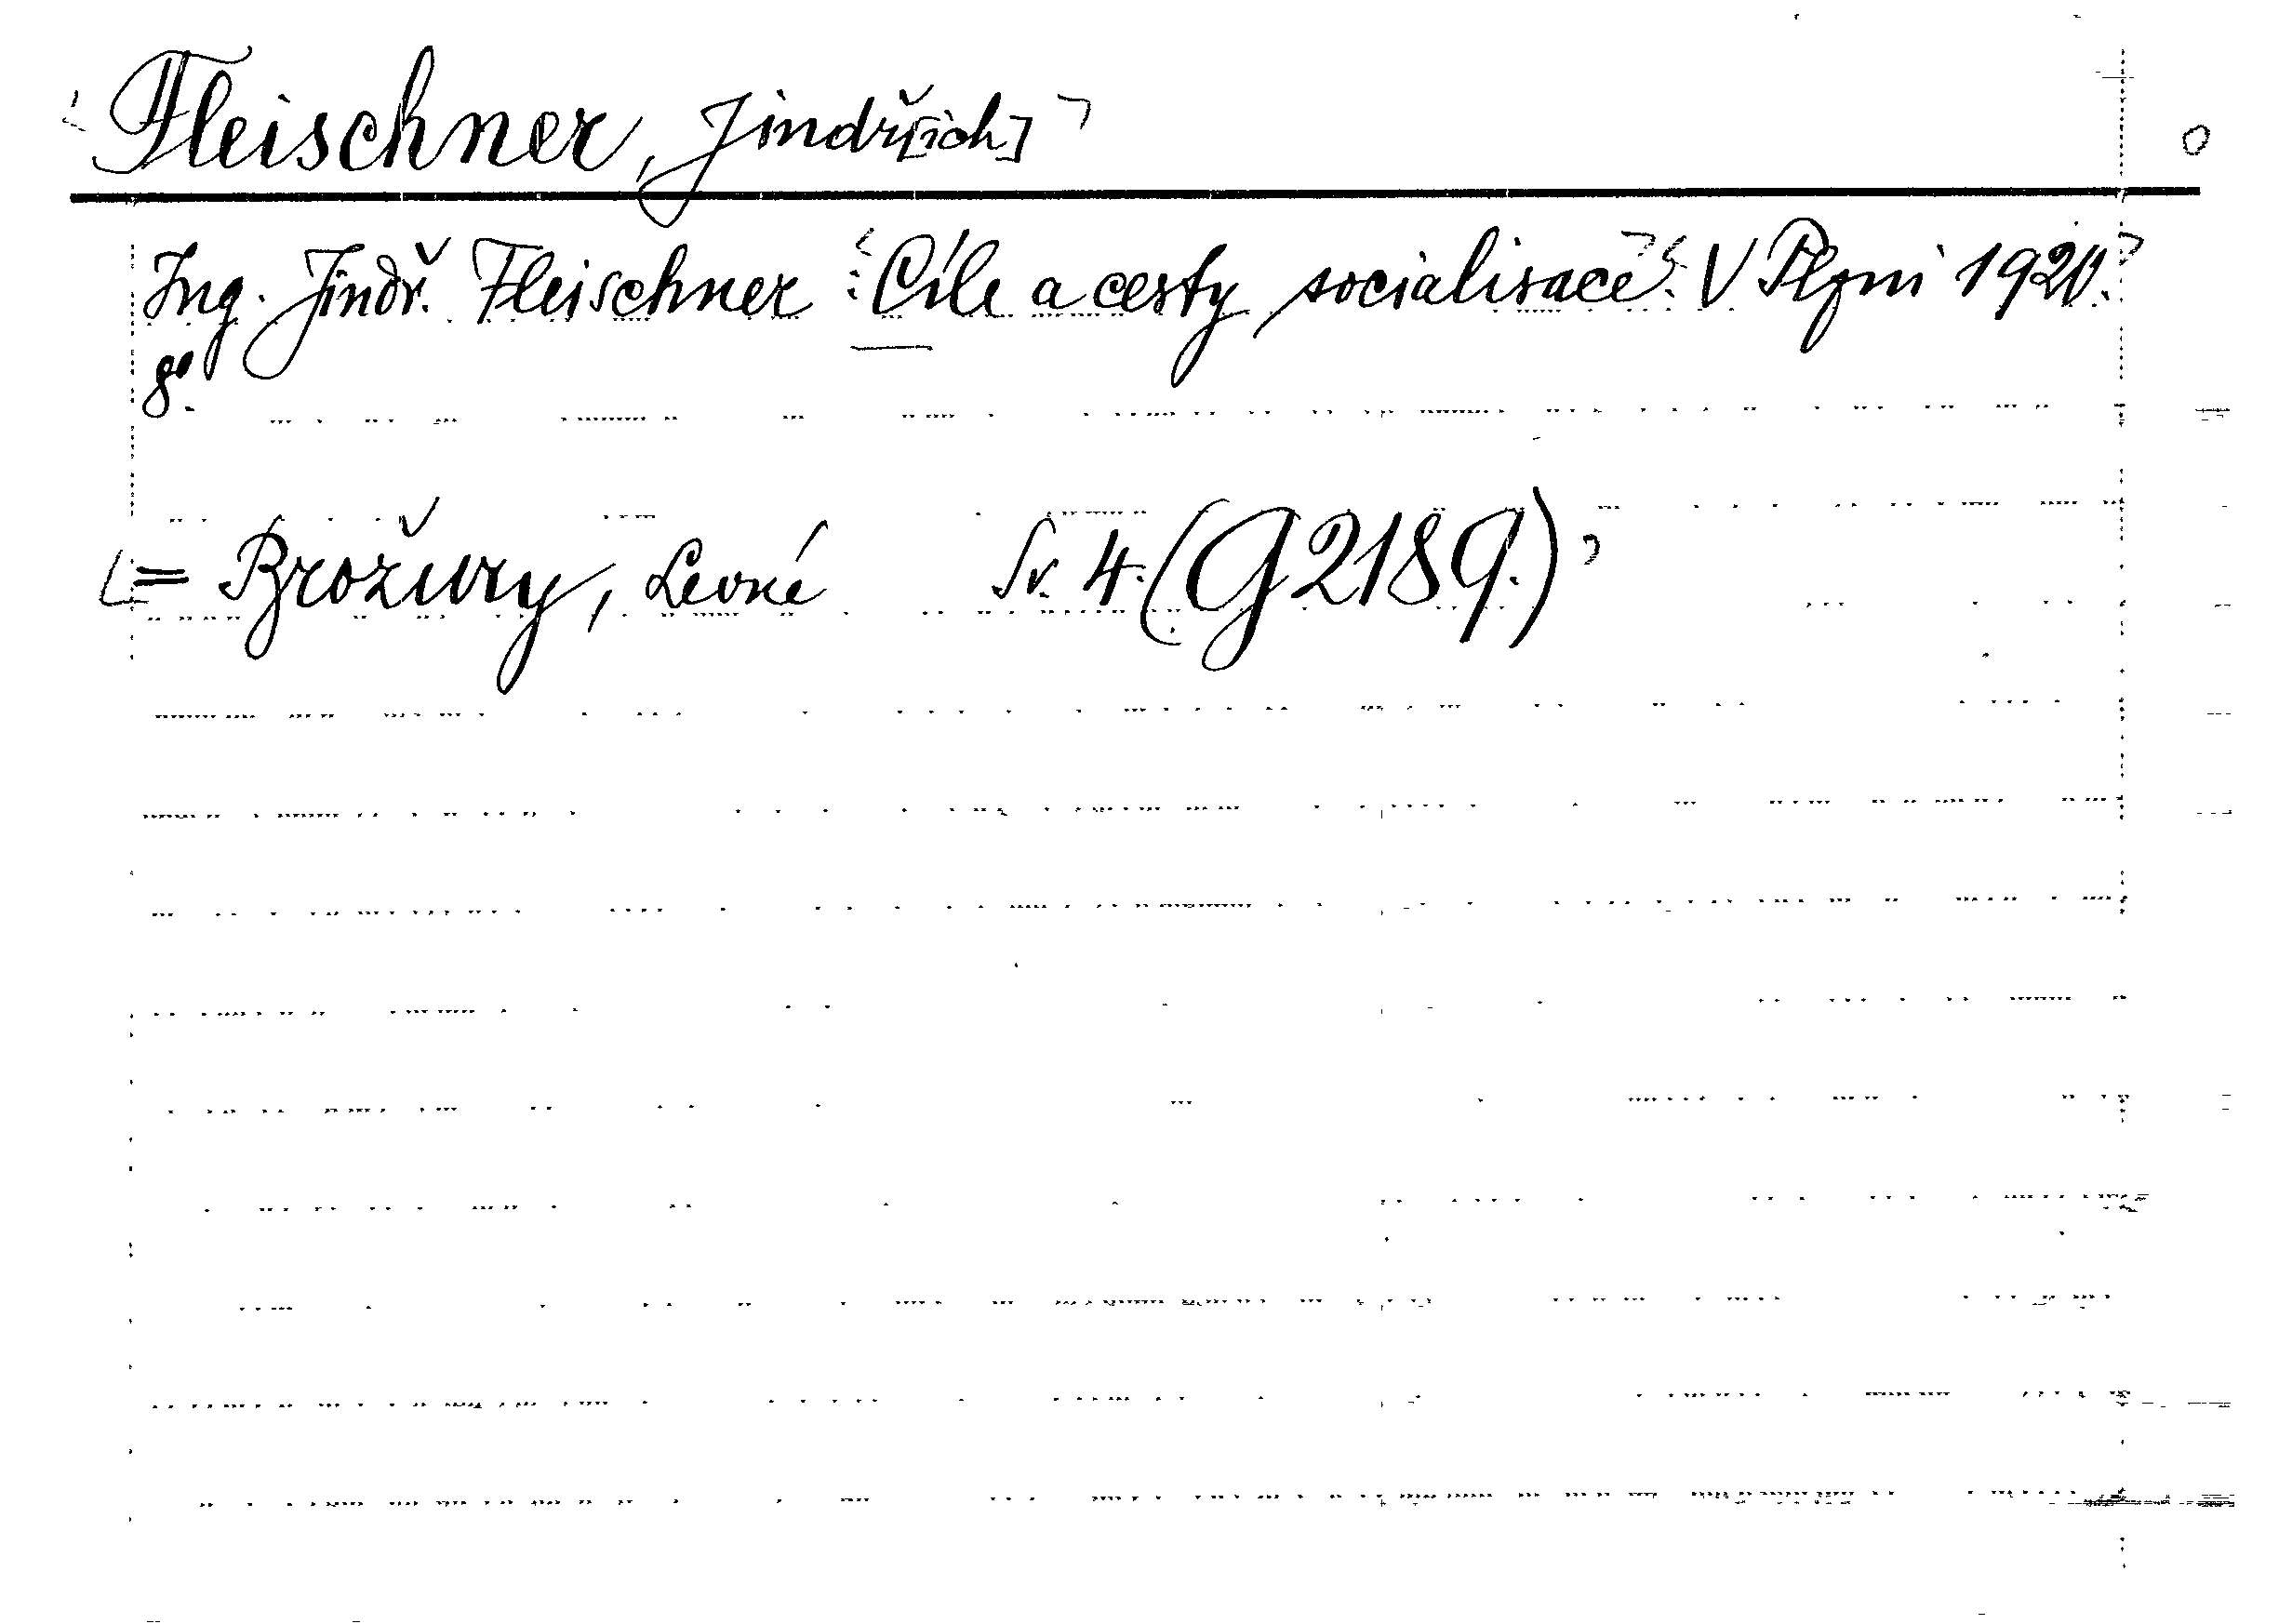 Fleischner, Jindř[ich]
Ing. Jindř. Fleischner: Cíle a cesty socialisace. V Plzni 1920.
8°.
= Brožury, Levné Sv. 4. (G 2189.)